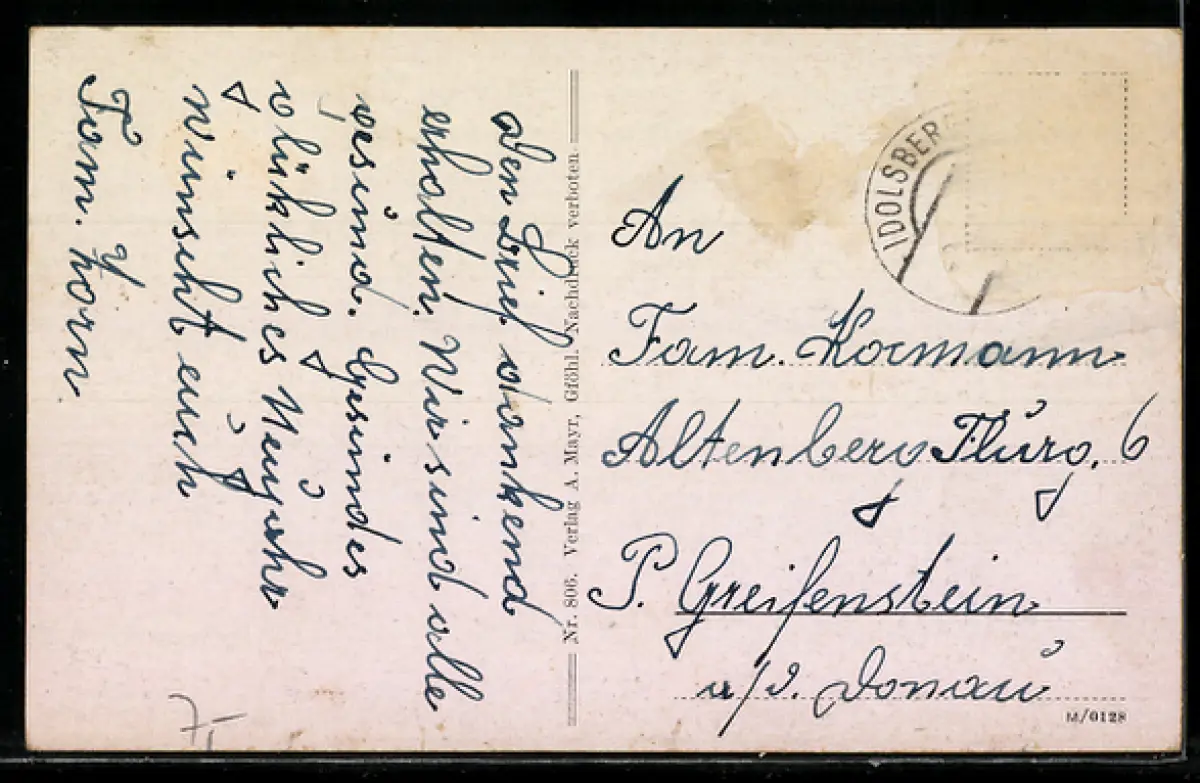 Den Brief dankend
erhalten. Wir sind alle
gesund. Gesundes
glükliches Neujahr
wünscht euch
Fam. Korn
Nr. 806. Verlag A. Mayr, Gföhl. Nachdruck verboten
IDOLSBER
An
Fam. Kormann
Altenberg Flurg. 6
P. Greifenstein
a/d. Donau
M/0128